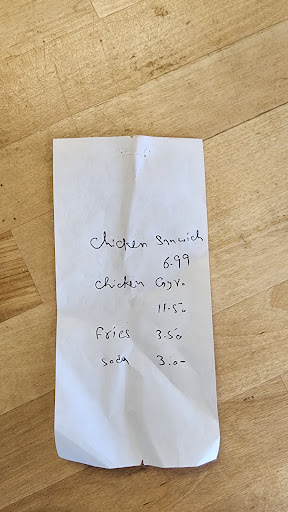 Chicken Sanwich
6.99
Chicken Gyro
11.50
Fries 3.50
Soda 3.0-